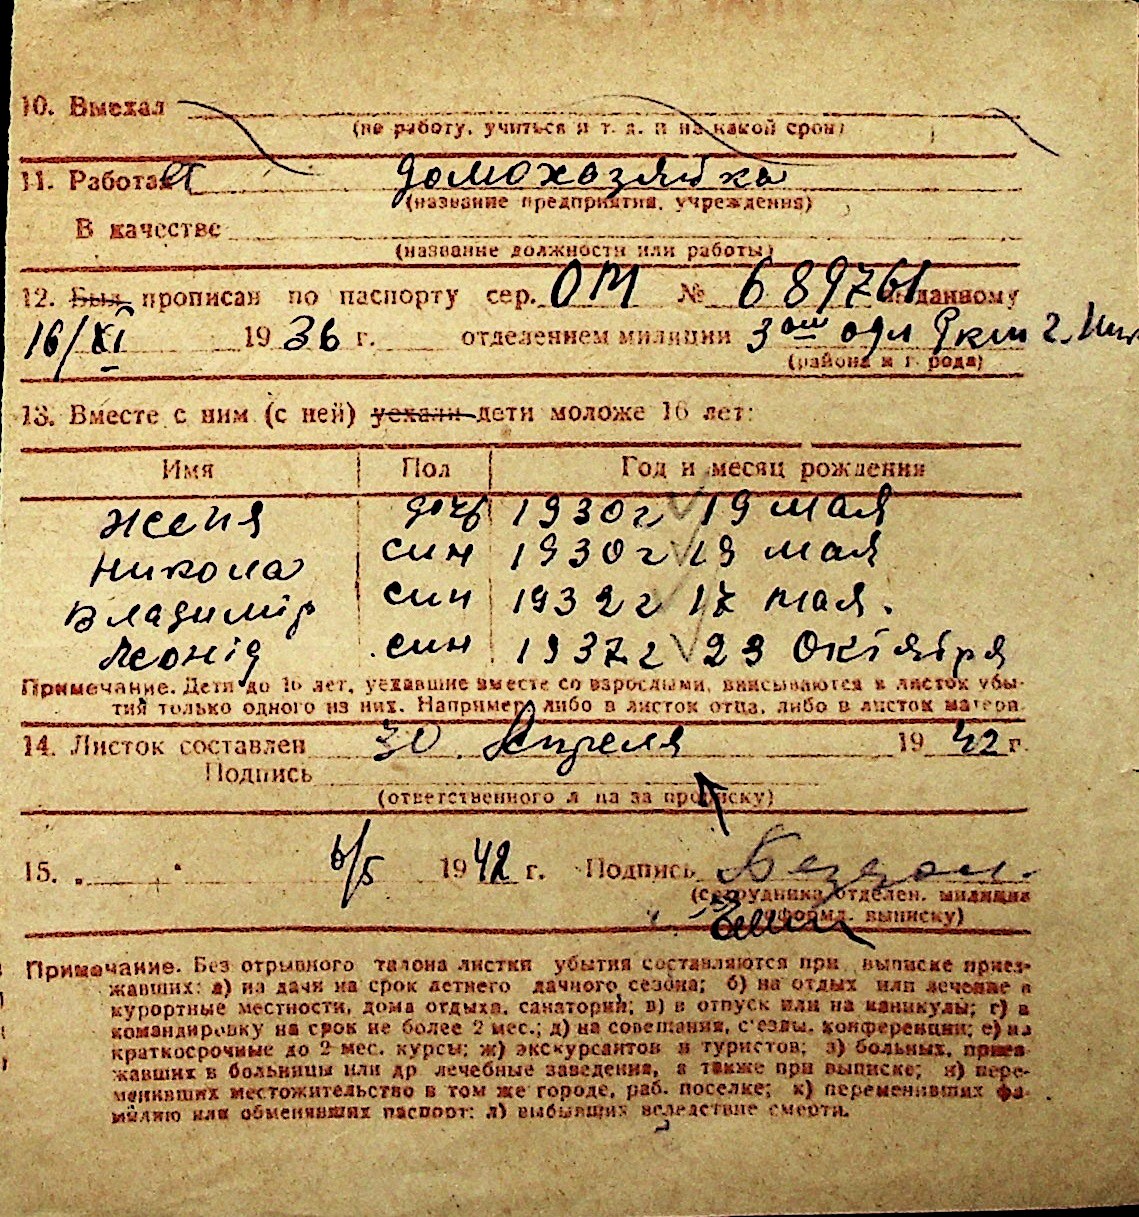 10. Выехал
(на работу, учиться и т. д. и на какой срок)
11. Работает домохазяйка
(название предприятия, учреждения)
В качестве
(название должности или работы)
12. Был прописан по паспорту сер. ОМ № 689761 выданному
16/XI 1936 г. отделением милиции 3 ом г.
(района и города)
13. Вместе с ним (с ней) уехали дети моложе 16 лет:
Имя Пол Год и месяц рождения
Женя дочь 1930 г 19 мая
Никола син 1930 г 19 мая
Владимір син 1932 г 17 мая.
Леонід син 1937 г 23 Октября
Примечание. Дети до 16 лет, уехавшие вместе со взрослыми, вписываются в листок убы-
тия только одного из них. Например, либо в листок отца, либо в листок матери.
14. Листок составлен 30 Апреля 1942 г.
Подпись
(ответственного лица за прописку)
15. 6/5 1942 г. Подпись
(сотрудника отделен. милиции
оформл. выписку)
Примечание. Без отрывного талона листки убытия составляются при выписке приез-
жавших: а) на дачи на срок летнего дачного сезона; б) на отдых или лечение в
курортные местности, дома отдыха, санатории; в) в отпуск или на каникулы; г) в
командировку на срок не более 2 мес.; д) на совещания, с'езды, конференции; е) на
краткосрочные до 2 мес. курсы; ж) экскурсантов и туристов; з) больных, приез-
жавших в больницы или др лечебные заведения, а также при выписке; и) пере-
менивших местожительство в том же городе, раб. поселке; к) переменивших фа-
милию или обменявших паспорт; л) выбывших вследствие смерти.